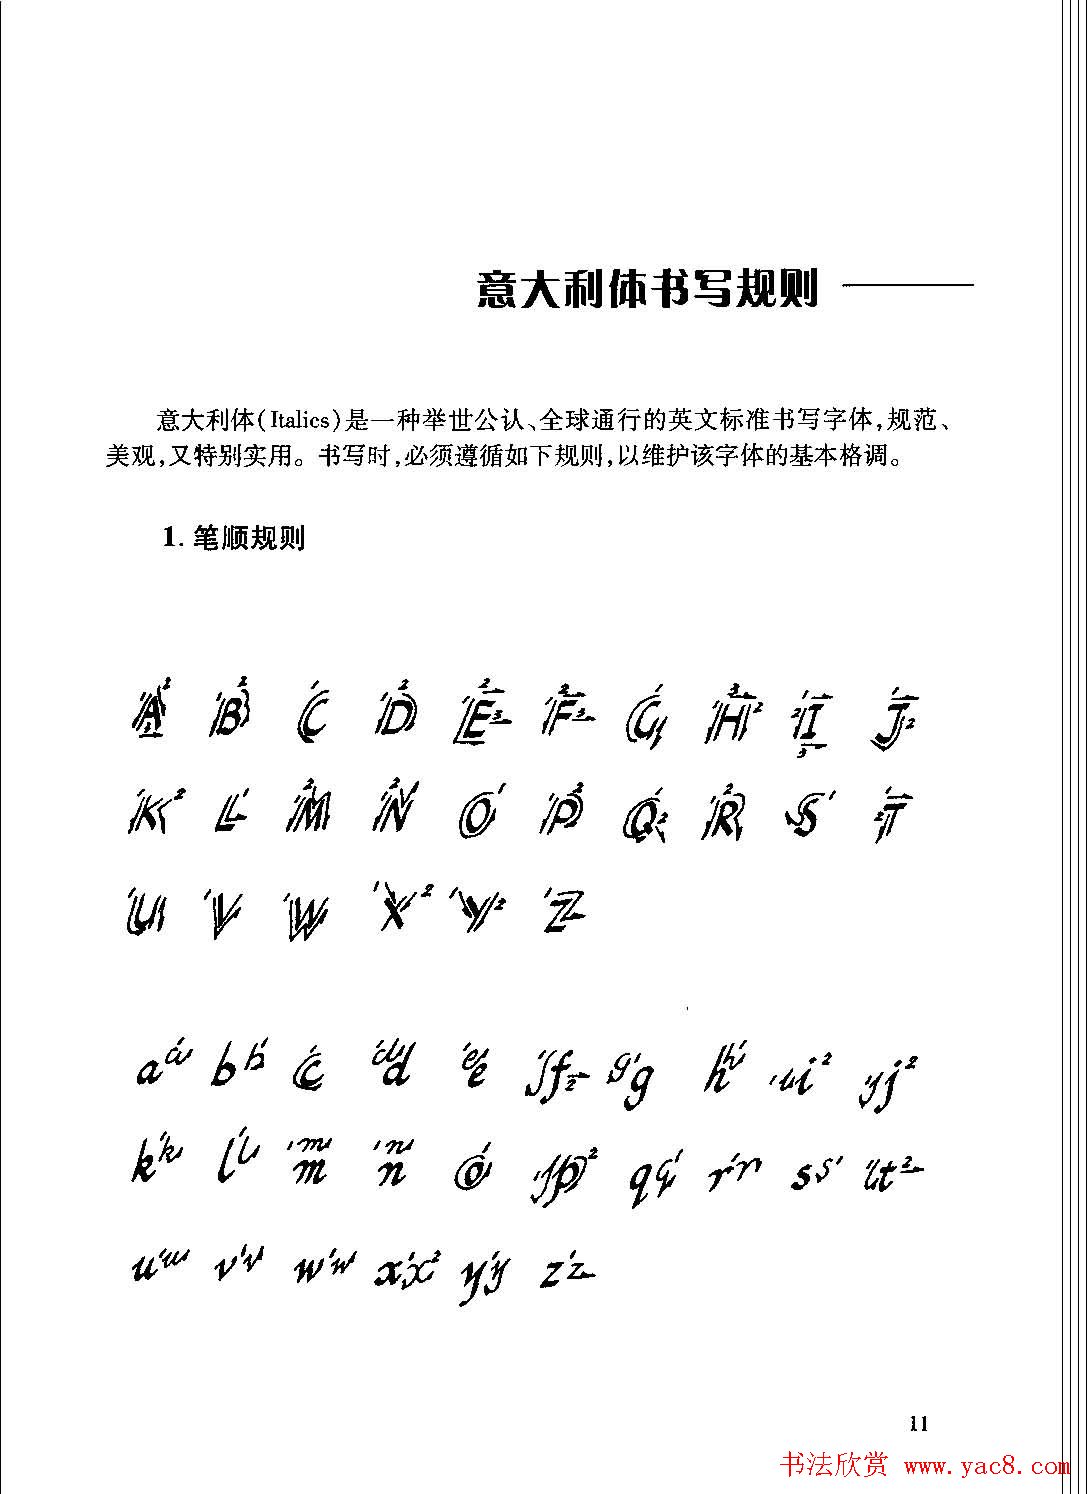 意大利体书写规则
意大利体(Italics)是一种举世公认、全球通行的英文标准书写字体,规范、
美观,又特别实用。书写时,必须遵循如下规则,以维护该字体的基本格调。
1. 笔顺规则
A B C D E F G H I J
K L M N O P Q R S T
U V W X Y Z
a b c d e f g h i j
k l m n o p q r s t
u v w x y z
11
书法欣赏 www.yac8.com